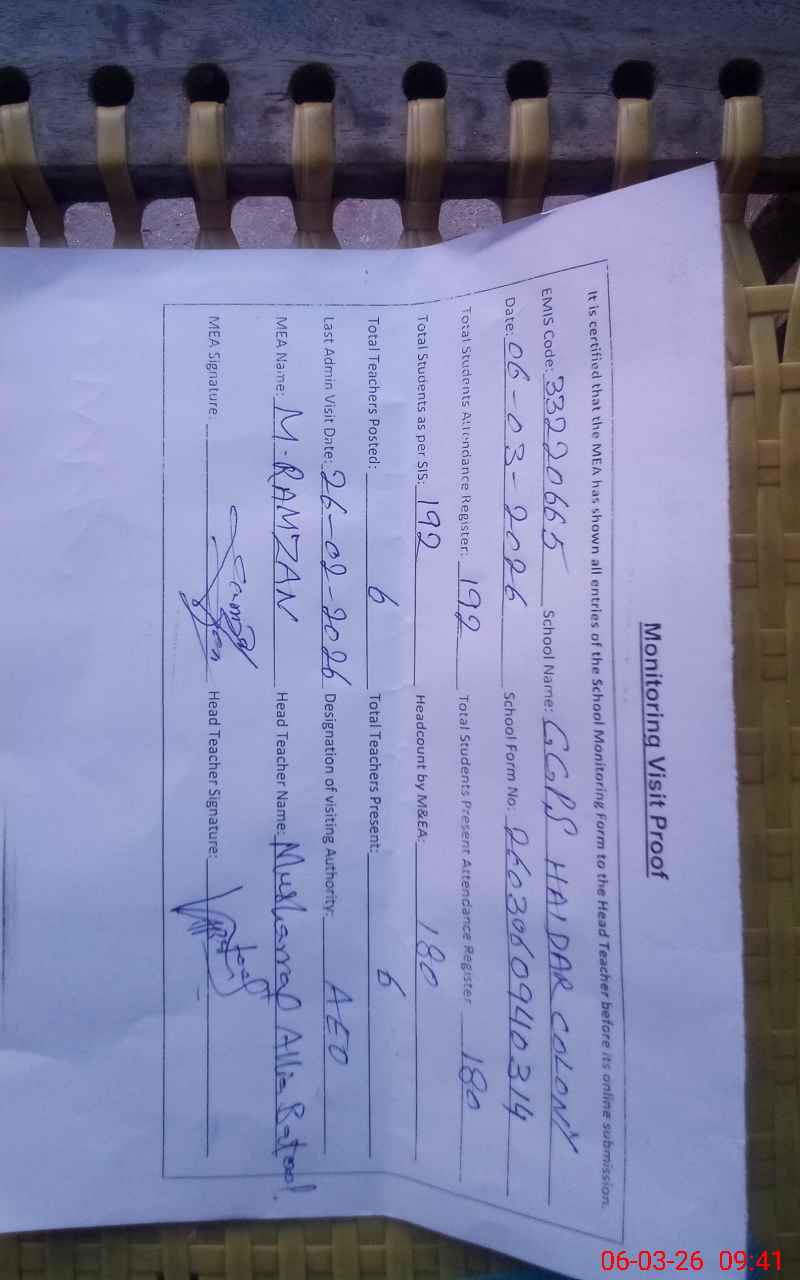 Monitoring Visit Proof
It is certified that the MEA has shown all entries of the School Monitoring Form to the Head Teacher before its online submission.
EMIS Code: 33220665 School Name: GGPS HAIDAR COLONY
Date: 06-03-2026 School Form No: 2603060940314
Total Students Attendance Register: 192 Total Students Present Attendance Register 180
Total Students as per SIS: 192 Headcount by M&EA: 180
Total Teachers Posted: 6 Total Teachers Present: 6
Last Admin Visit Date: 26-02-2026 Designation of visiting Authority: AEO
MEA Name: M. RAMZAN Head Teacher Name: Musharraf Allia Batool
MEA Signature: Head Teacher Signature:
06-03-26 09:41